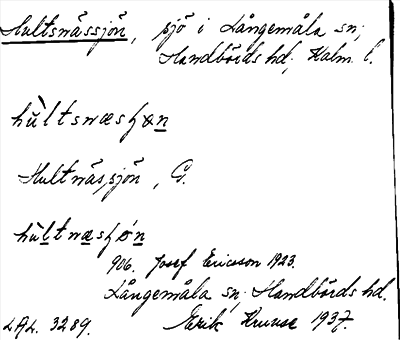 Hultsnässjön, sjö i Långemåla sn;
Handbörds hd; Kalm. l.
hùltsnæsʃøn
Hultnässjön, G.
hùltnæsʃǿn
906. Josef Ericsson 1923.
Långemåla sn; Handbörds hd.
LAL. 3289. Erik Kruuse 1937.